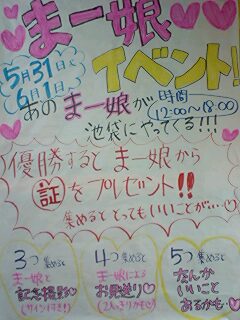 まー娘
イベント!
5月31日と
6月1日、
あの まー娘が
時間
12:00~18:00
池袋にやってくる!!!
優勝すると まー娘から
証をプレゼント!!
集めると とってもいいことが…♡
3つ 集めると
まー娘と
記念撮影♡
(サイン付き!)
4つ 集めると
まー娘による
お見送り♡
(2人っきりかも♡)
5つ 集めると
なんか
いいこと
あるかも♡